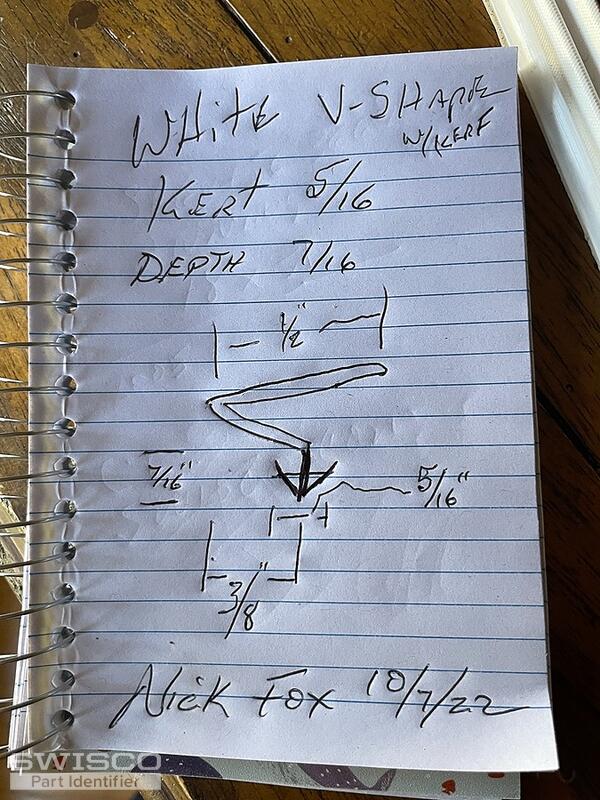 WHitE V-SHAPE
w/KERF
KERF 5/16
DEPTH 7/16
1/2"
7/16"
5/16"
3/8"
Nick Fox 10/7/22
SWISCO
Part Identifier